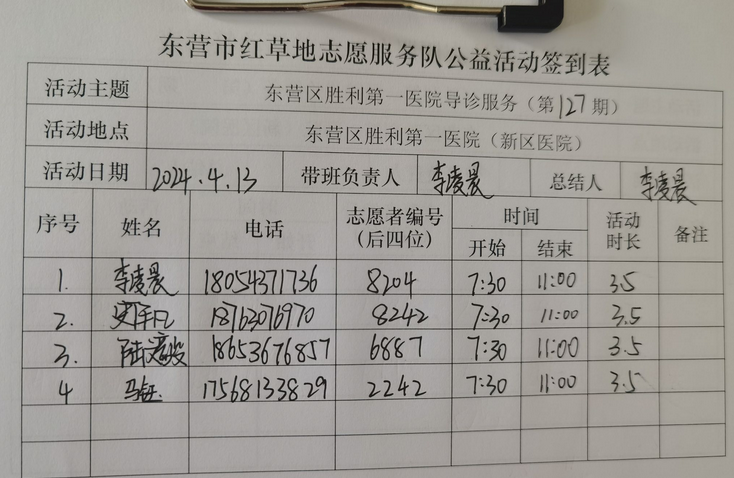 东营市红草地志愿服务队公益活动签到表
活动主题 东营区胜利第一医院导诊服务（第127期）
活动地点 东营区胜利第一医院（新区医院）
活动日期 2024.4.13 带班负责人 李凌晨 总结人 李凌晨
序号 姓名 电话 志愿者编号（后四位） 时间 开始 结束 活动时长 备注
1. 李凌晨 18054371736 8204 7:30 11:00 3.5
2. 18763076970 8242 7:30 11:00 3.5
3. 陆 18653676857 6887 7:30 11:00 3.5
4 马钰 17568133829 2242 7:30 11:00 3.5